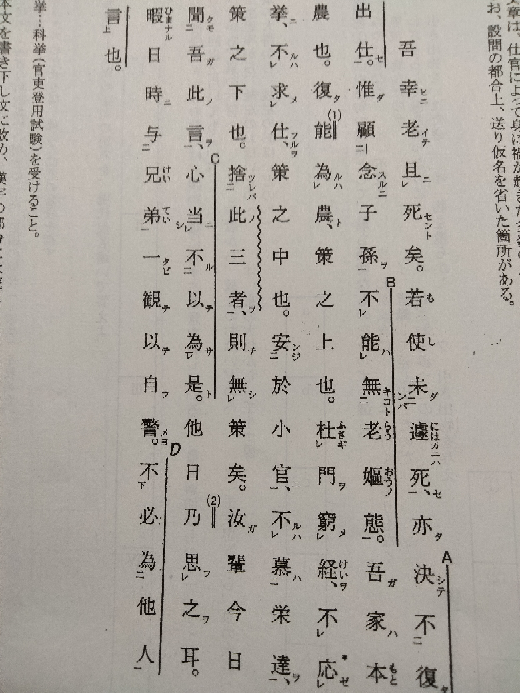 お、設問の都合上、送り仮名を省いた箇所がある。
吾幸老且死矣。若使未遽死、亦決不復
出仕。惟顧念子孫不能無老嫗態。吾家本
農也。復能為農、策之上也。杜門窮経、不応
挙、不求仕、策之中也。安於小官、不慕栄達、
策之下也。捨此三者、則無策矣。汝輩今日
聞吾此言、心当不以為是。他日乃思之耳。
暇日時与兄弟一観以自警。不必為他人
言也。
挙…科挙(官吏登用試験)を受けること。